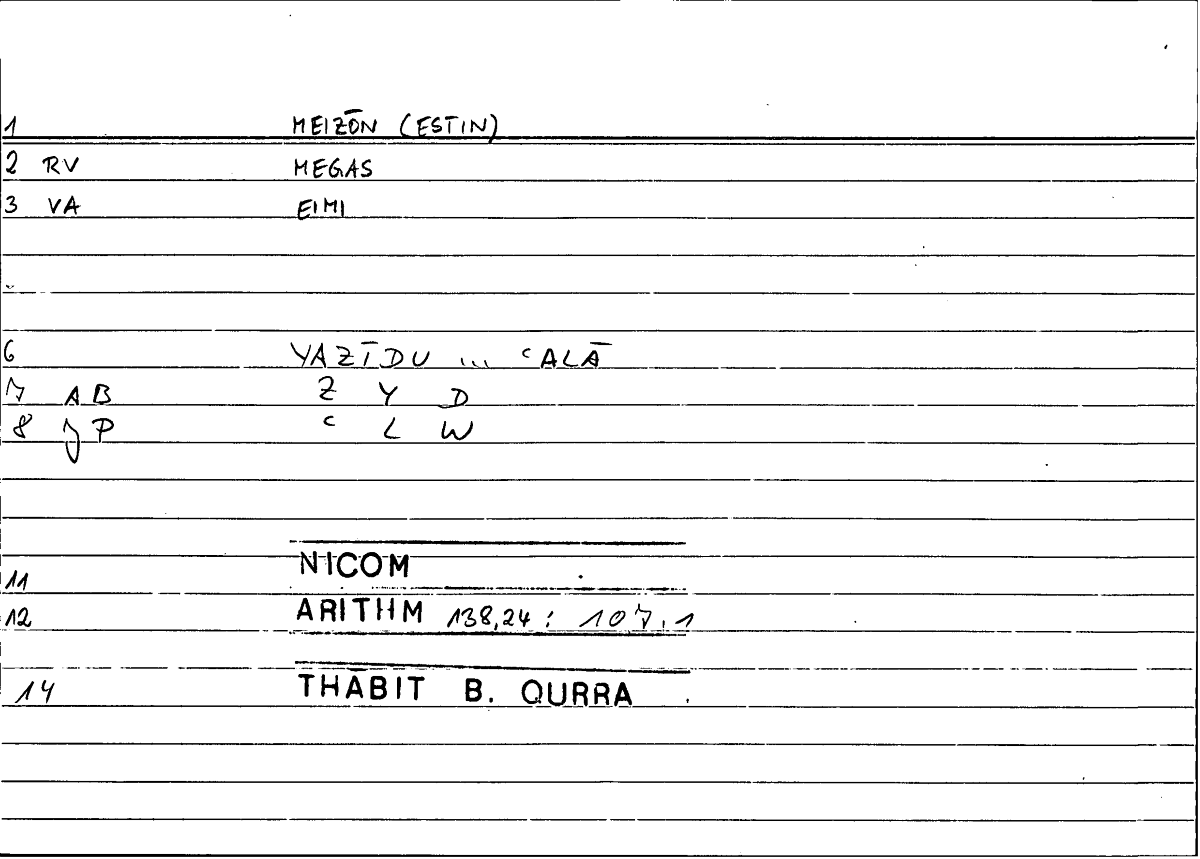 1 MEIZŌN (ESTIN)
2 RV MEGAS
3 VA EIMI
6 YAZĪDU ... ʿALĀ
7 AB Z Y D
8 JP ʿ L W
11 NICOM
12 ARITHM 138,24 : 107,1
14 THĀBIT B. QURRA